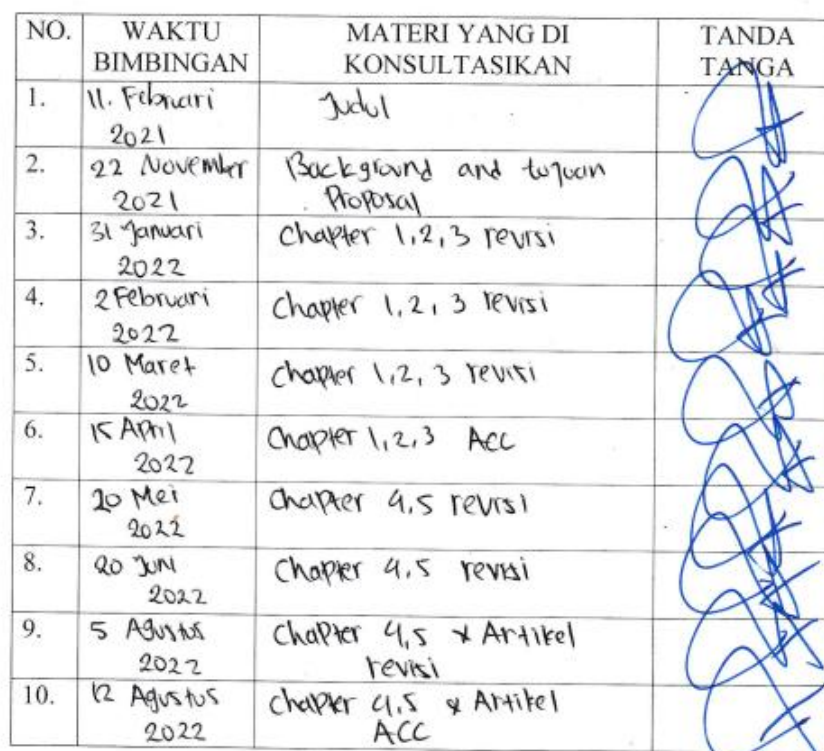 NO. WAKTU BIMBINGAN MATERI YANG DI KONSULTASIKAN TANDA TANGA
1. 11. Februari 2021 Judul
2. 22 November 2021 Background and tujuan Proposal
3. 31 Januari 2022 Chapter 1,2,3 revisi
4. 2 Februari 2022 Chapter 1,2,3 revisi
5. 10 Maret 2022 Chapter 1,2,3 revisi
6. 15 April 2022 Chapter 1,2,3 Acc
7. 20 Mei 2022 Chapter 4,5 revisi
8. 20 Juni 2022 Chapter 4,5 revisi
9. 5 Agustus 2022 Chapter 4,5 & Artikel revisi
10. 12 Agustus 2022 Chapter 4,5 & Artikel ACC